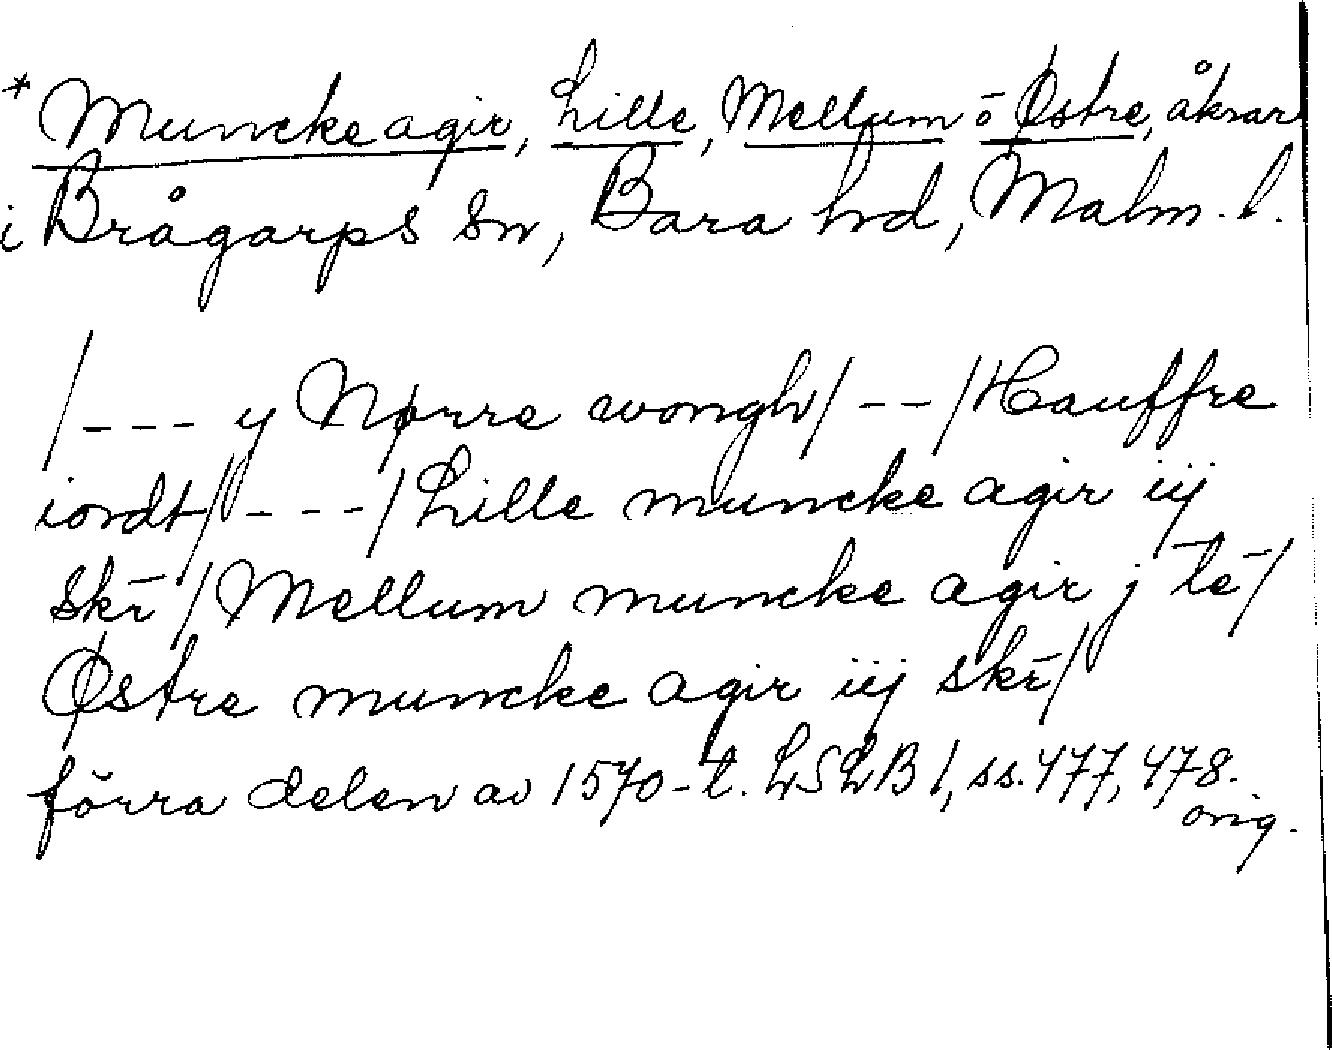 * Muncke agir, Lille, Mellum o Østre, åkrar
i Brågarps sn, Bara hd, Malm. l.
/--- y Nørre wongh/--/Hauffre
iordt/---/Lille muncke agir iij
skr̄/Mellum muncke agir j te̅/
Østre muncke agir iij skr̄/
förra delen av 1570-t. LSLB 1, ss. 477, 478.
orig.